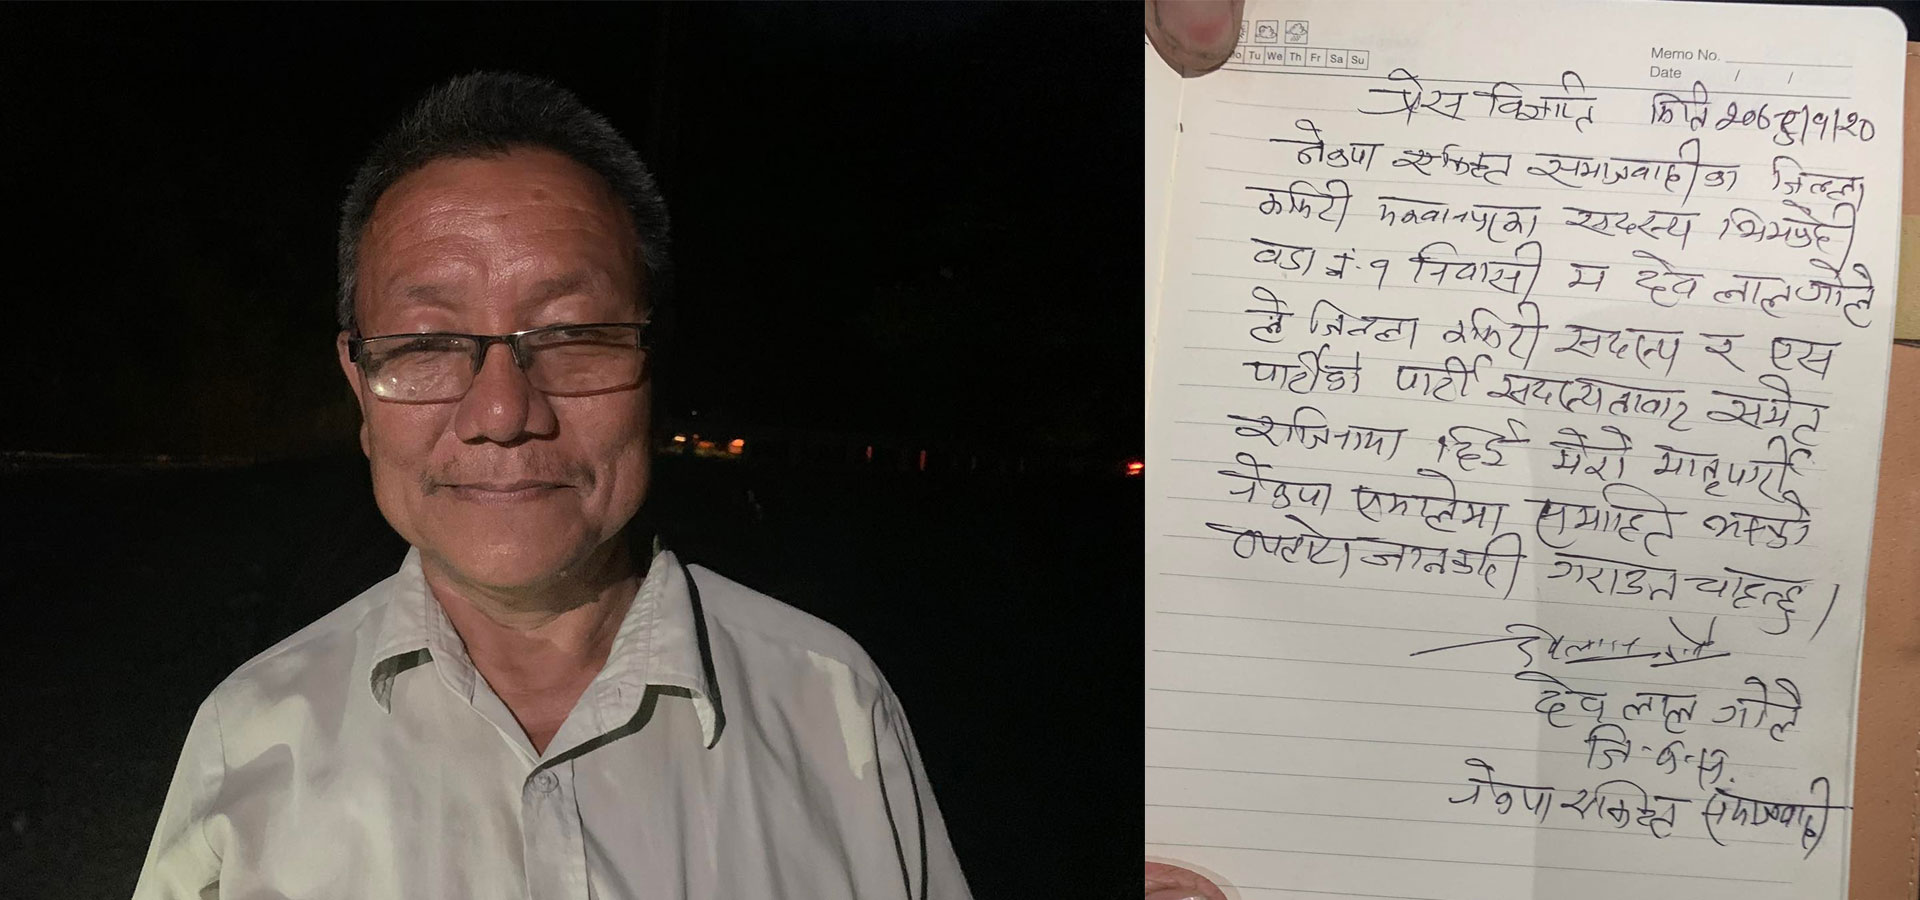 Tu We Th Fr Sa Su
Memo No.
Date / /
प्रेस विज्ञप्ति मिति २०७९/१/२०
नेकपा एकिकृत समाजवादीका जिल्ला
कमिटी मकवानपुरका सदस्य भिमफेदी
वडा नं. १ निवासी म देव लाल गोले
ले जिल्ला कमिटी सदस्य र एस
पार्टीको पार्टी सदस्यताबाट समेत
राजिनामा दिई मेरो मातृपार्टी
नेकपा एमालेमा समाहित भएको
व्यहोरा जानकारी गराउन चाहन्छु।
देवलाल गोले
देव लाल गोले
जि. क. स.
नेकपा एकिकृत समाजवादी